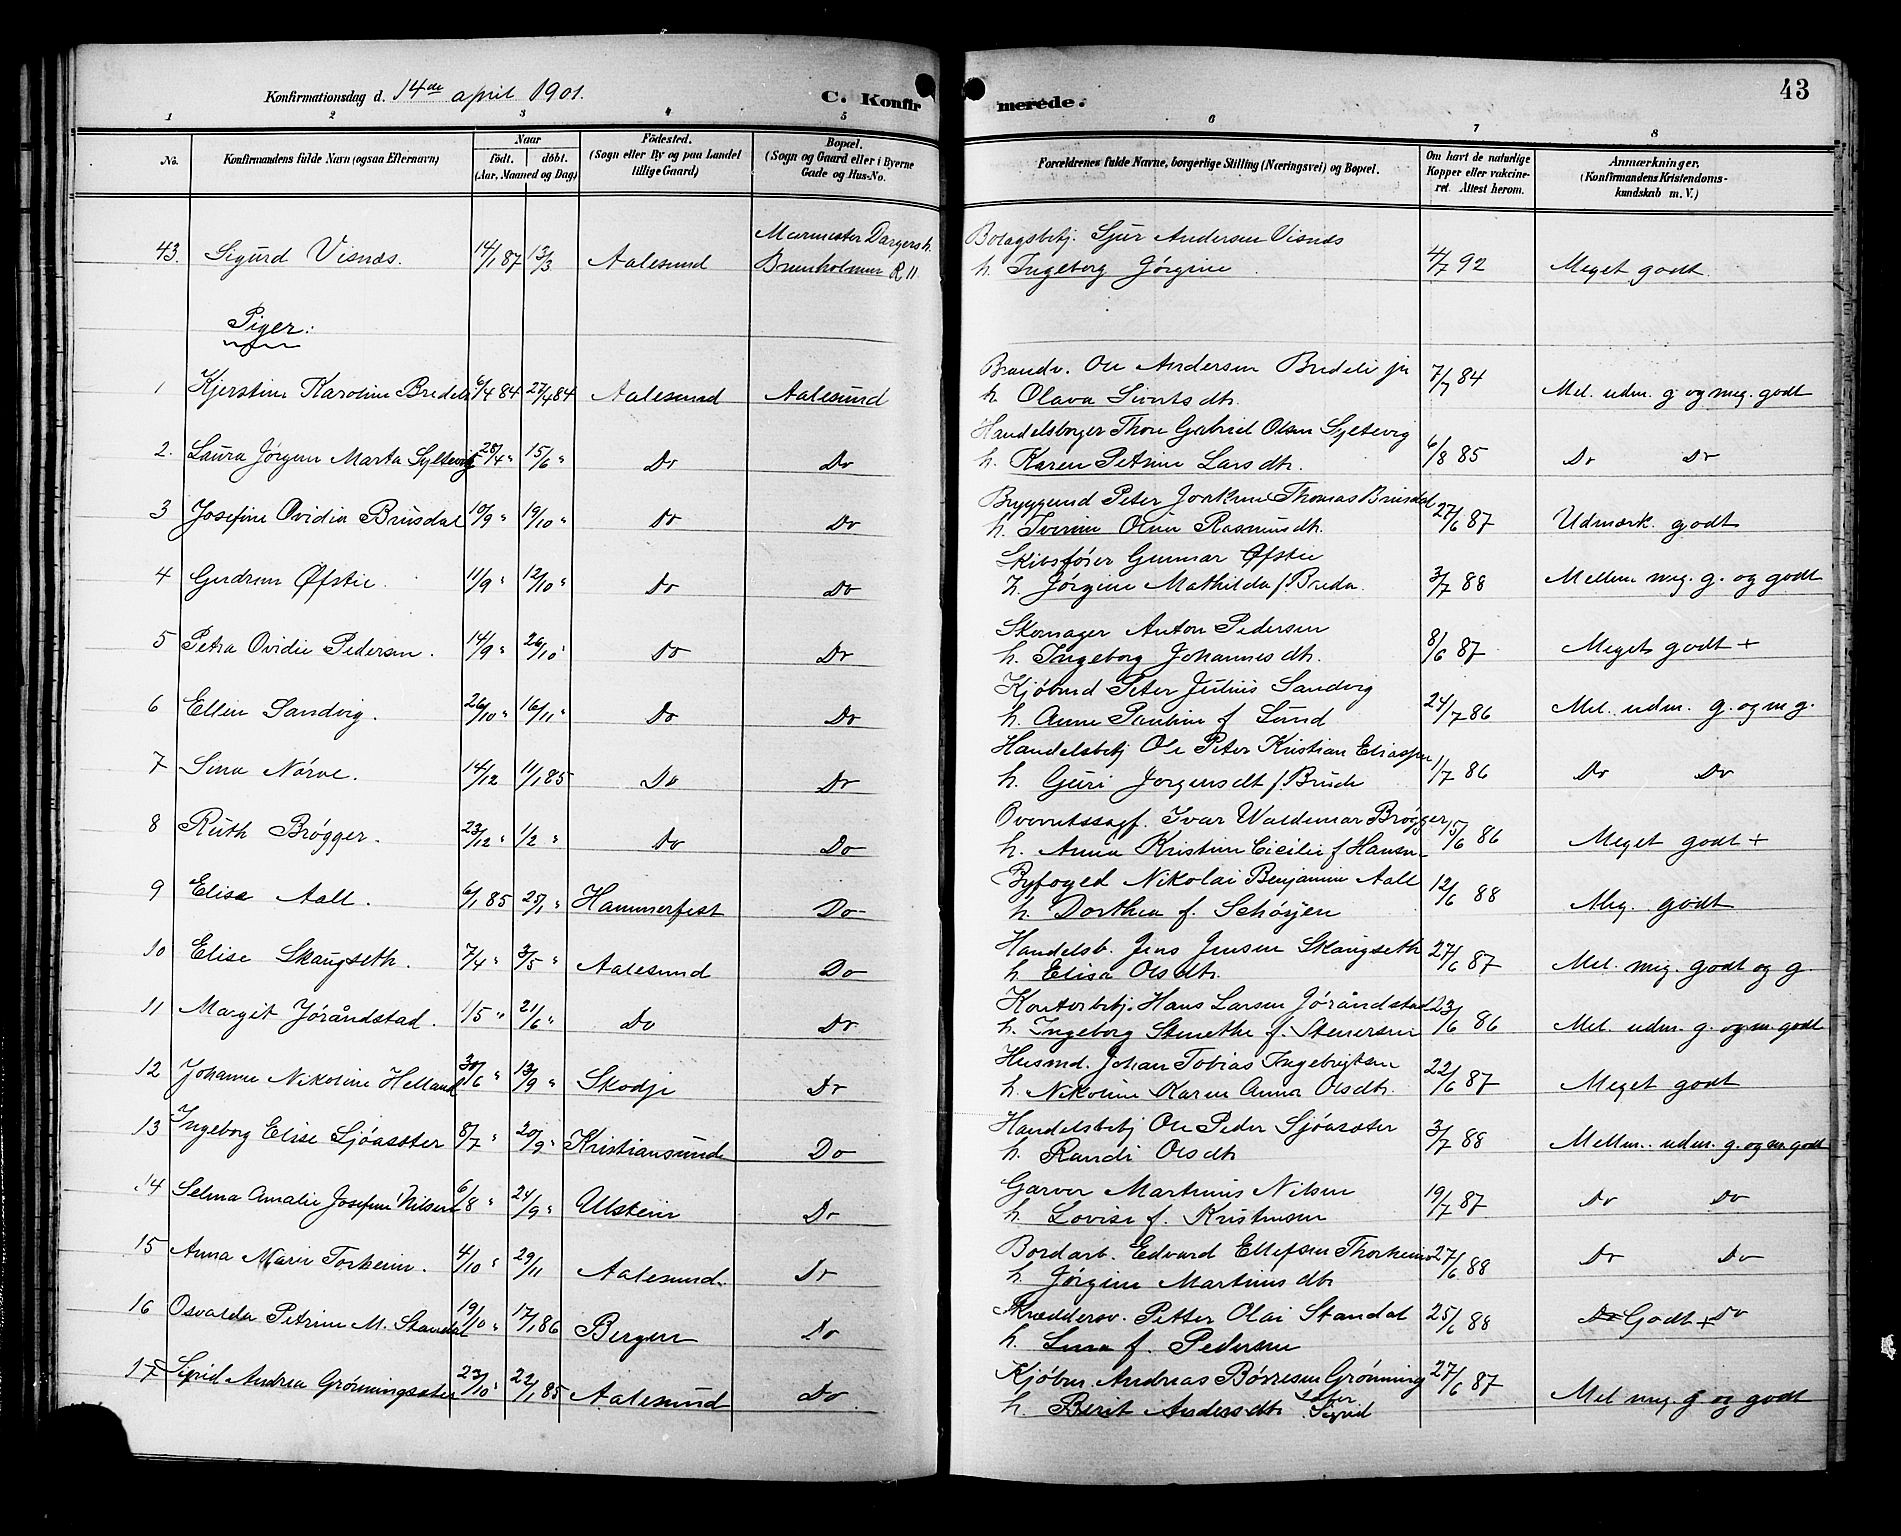 Konfirmationsdag d. 14de april 1901.
C. Konfirmerede.
43
1 2 3 4 5 6 7 8
No. Konfirmandens fulde Navn (ogsaa Efternavn) Naar født. døbt. (Aar, Maaned og Dag) Fødested. (Sogn eller By og paa Landet tillige Gaard) Bopæl. (Sogn og Gaard eller i Byerne Gade og Hus-No. Forældrenes fulde Navne, borgerlige Stilling (Næringsvei) og Bopæl. Om havt de naturlige Kopper eller vakcineret. Attest herom. Anmærkninger, (Konfirmandens Kristendomskundskab m. V.)
43. Sigurd Visnes. 14/1 87 13/3 Aalesund Murmester Dargersh. Bunholmen R 11 Bolagsbetj. Sjur Andersen Visnes h. Ingeborg Jørgine 4/7 92 Meget godt.
Piger:
1 Kjerstine Karoline Bredeli 6/4 84 27/4 84 Aalesund Aalesund Brandv. Ole Andersen Bredeli jr h. Olava Sivertsdtr. 7/7 84 Mel. udm. g. og meg. godt
2. Laura Jørgine Marta Syltevig 28/4 " 15/6 " Do Do Handelsborger Thore Gabriel Olsen Syltevig h. Karen Petrine Larsdtr. 6/8 85 Do Do
3 Josefine Ovidia Brusdal 10/9 " 19/10 " Do Do Bryggemd Peter Joakim Thomas Brusdal h. Iverine Oline Rasmusdtr. 27/6 87 Udmærk. godt
4 Gudrun Øfstie. 11/9 " 12/10 " Do Do Skibsfører Gunnar Øfstie h. Jørgine Mathilda f. Breda. 3/7 88 Mellem meg. g. og godt
5 Petra Ovidie Pedersen. 14/9 " 26/10 " Do Do Skomager Anton Pedersen h. Ingeborg Johannesdtr. 8/6 87 Meget godt +
6 Ellen Sandvig. 26/10 " 16/11 " Do Do Kjøbmd Peter Julius Sandvig h. Anne Pauline f. Lund 24/7 86 Mel. udm. g. og m g.
7 Sina Nørve. 14/12 11/1 85 Do Do Handelsbetj Ole Peter Kristian Eliassen h. Guri Jørgensdt f. Brude 1/7 86 Do Do
8 Ruth Brøgger. 23/12 " 1/2 " Do Do Overretssagf. Ivar Waldemar Brøgger h. Anna Kristine Cicilie f. Hansen 15/6 86 Meget godt +
9 Elisa Aall. 6/1 85 25/1 " Hammerfest Do Byfoged Nikolai Benjamin Aall h. Dorthea f. Schøyen 12/6 88 Meg. godt
10 Elise Skaugseth. 7/4 " 3/5 " Aalesund Do Handelsb. Jens Jensen Skaugseth h. Elisa Olsdtr. 27/6 87 Mel. meg. godt og g.
11 Margit Jøråndstad. 1/5 " 21/6 " Do Do Kontorbetj. Hans Larsen Jøråndstad h. Ingeborg Stinethe f. Stenersen 23/6 86 Mel. udm. g. og m. godt
12 Johanne Nikoline Helland 30/6 " 13/9 " Skodje Do Husmd. Johan Tobias Ingebrigtsen h. Nikoline Karen Anna Olsdtr. 22/6 87 Meget godt
13 Ingeborg Elise Sjøasæter 8/7 " 20/9 " Kristiansund Do Handelsbetj Ole Peder Sjøasæter h. Randi Olsdtr 3/7 88 Mellem. udm. g. og m. godt
14 Selma Amalie Josefine Nilsen 6/8 " 24/9 " Ulstein Do Garver Martinus Nilsen h. Lovise f. Kristensen 19/7 87 Do Do
15 Anna Marie Torheim. 4/10 " 29/11 Aalesund. Do Bordarb. Edvard Ellefsen Thorheim h. Jørgine Martinusdtr 27/6 88 Do Do
16 Osvalda Petrine M. Standal 19/10 " 17/1 86 Bergen Do Skrædderv. Petter Olai Standal h. Lina f. Pedersen 25/6 88 Do Godt + Do
17 Sigrid Andrea Grønningsæter 23/10 " 22/1 85 Aalesund Do Kjøbm. Andreas Børresen Grønningsæter h. Berit Andersdtr. Sigrid 27/6 87 Mel meg. g og godt